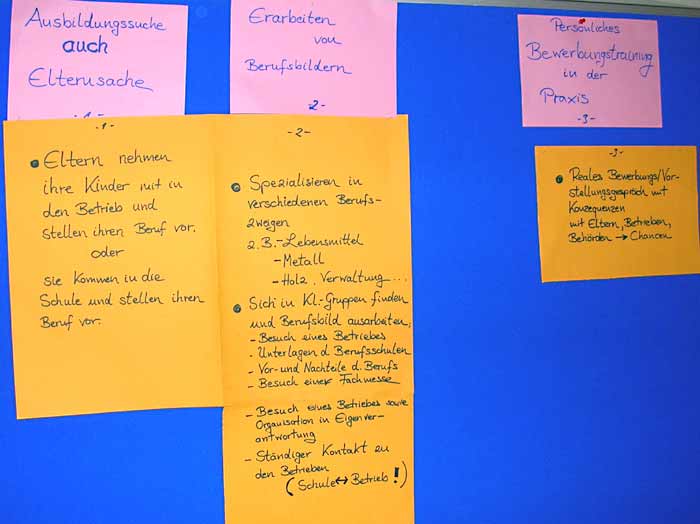 Ausbildungssuche
auch
Elternsache
-1-
-1-
Eltern nehmen
ihre Kinder mit in
den Betrieb und
stellen ihren Beruf vor.
oder
sie kommen in die
Schule und stellen ihren
Beruf vor.
Erarbeiten
von
Berufsbildern
-2-
-2-
Spezialisieren in
verschiedenen Berufs-
zweigen
z.B.-Lebensmittel
-Metall
-Holz, Verwaltung ...
Sich in Kl.-Gruppen finden
und Berufsbild ausarbeiten,
- Besuch eines Betriebes
- Unterlagen d. Berufsschulen
- Vor- und Nachteile d. Berufs
- Besuch einer Fachmesse
- Besuch eines Betriebes sowie
Organisation in Eigenver-
antwortung
- Ständiger Kontakt zu
den Betrieben
(Schule ↔ Betrieb!)
Persönliches
Bewerbungstraining
in der
Praxis
-3-
-3-
Reales Bewerbungs/Vor-
stellungsgespräch mit
Konzequenzen
mit Eltern, Betrieben,
Behörden → Chancen